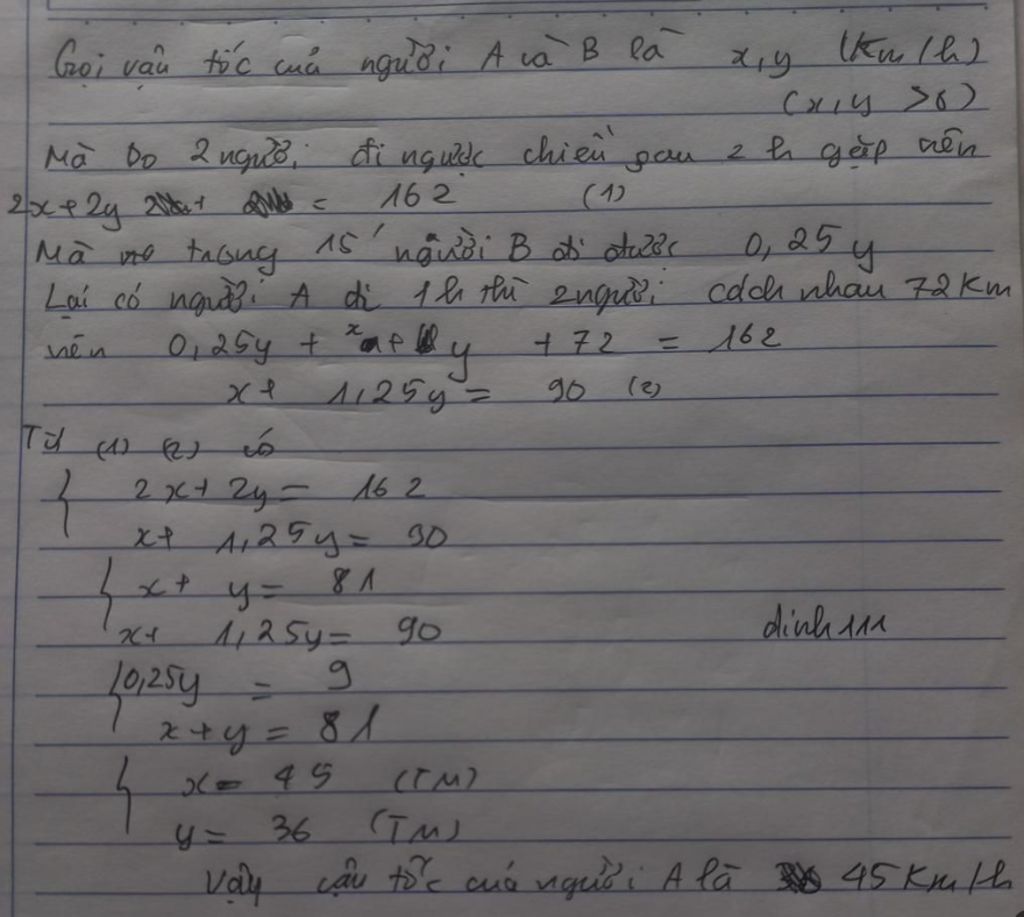 Gọi vận tốc của người A và B là x,y (Km/h)
(x,y >0)
Mà Do 2 người đi ngược chiều sau 2 h gặp nên
2x+2y = 162 (1)
Mà trong 15' người B đi được 0,25y
Lại có người A đi 1h thì 2 người cách nhau 72 Km
nên 0,25y + x + y + 72 = 162
x + 1,25y = 90 (2)
Từ (1) (2) có
{ 2x + 2y = 162
x + 1,25y = 90
{ x + y = 81
x + 1,25y = 90
dinh111
{ 0,25y = 9
x + y = 81
{ x = 45 (TM)
y = 36 (TM)
Vậy vận tốc của người A là 45 Km/h